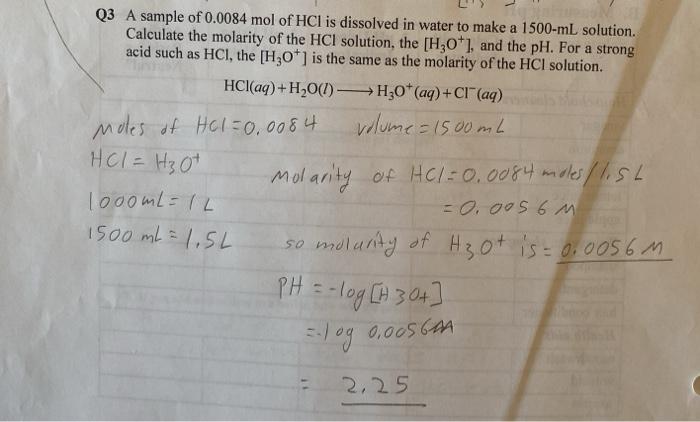 Q3 A sample of 0.0084 mol of HCl is dissolved in water to make a 1500-mL solution.
Calculate the molarity of the HCl solution, the [H₃O⁺], and the pH. For a strong
acid such as HCl, the [H₃O⁺] is the same as the molarity of the HCl solution.
HCl(aq) + H₂O(l) ⟶ H₃O⁺(aq) + Cl⁻(aq)
Moles of HCl = 0.0084 volume = 1500 mL
HCl = H₃O⁺
Molarity of HCl = 0.0084 moles / 1.5 L
1000mL = 1 L
= 0.0056 M
1500 mL = 1.5L
so molarity of H₃O⁺ is = 0.0056 M
PH = -log [H3O+]
= -log 0.0056M
= 2.25